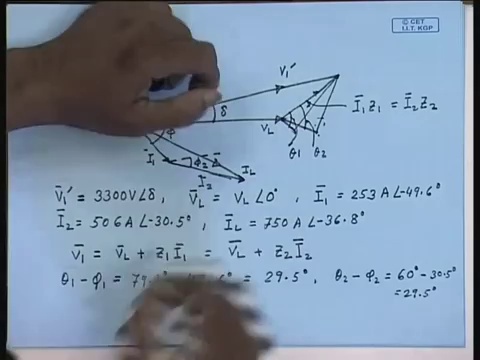 © CET
I.I.T. KGP
V̄₁′
δ
Ī₁Z₁ = Ī₂Z₂
V_L
θ₁ θ₂
Ī₁
φ₂
I₂
I_L
V̄₁′ = 3300V∠δ, V̄_L = V_L∠0°, Ī₁ = 253A∠-49.6°
Ī₂ = 506A∠-30.5°, Ī_L = 750A∠-36.8°
V̄₁ = V̄_L + Z₁Ī₁ = V̄_L + Z₂Ī₂
θ₁ - φ₁ = = 29.5°, θ₂ - φ₂ = 60° - 30.5°
= 29.5°